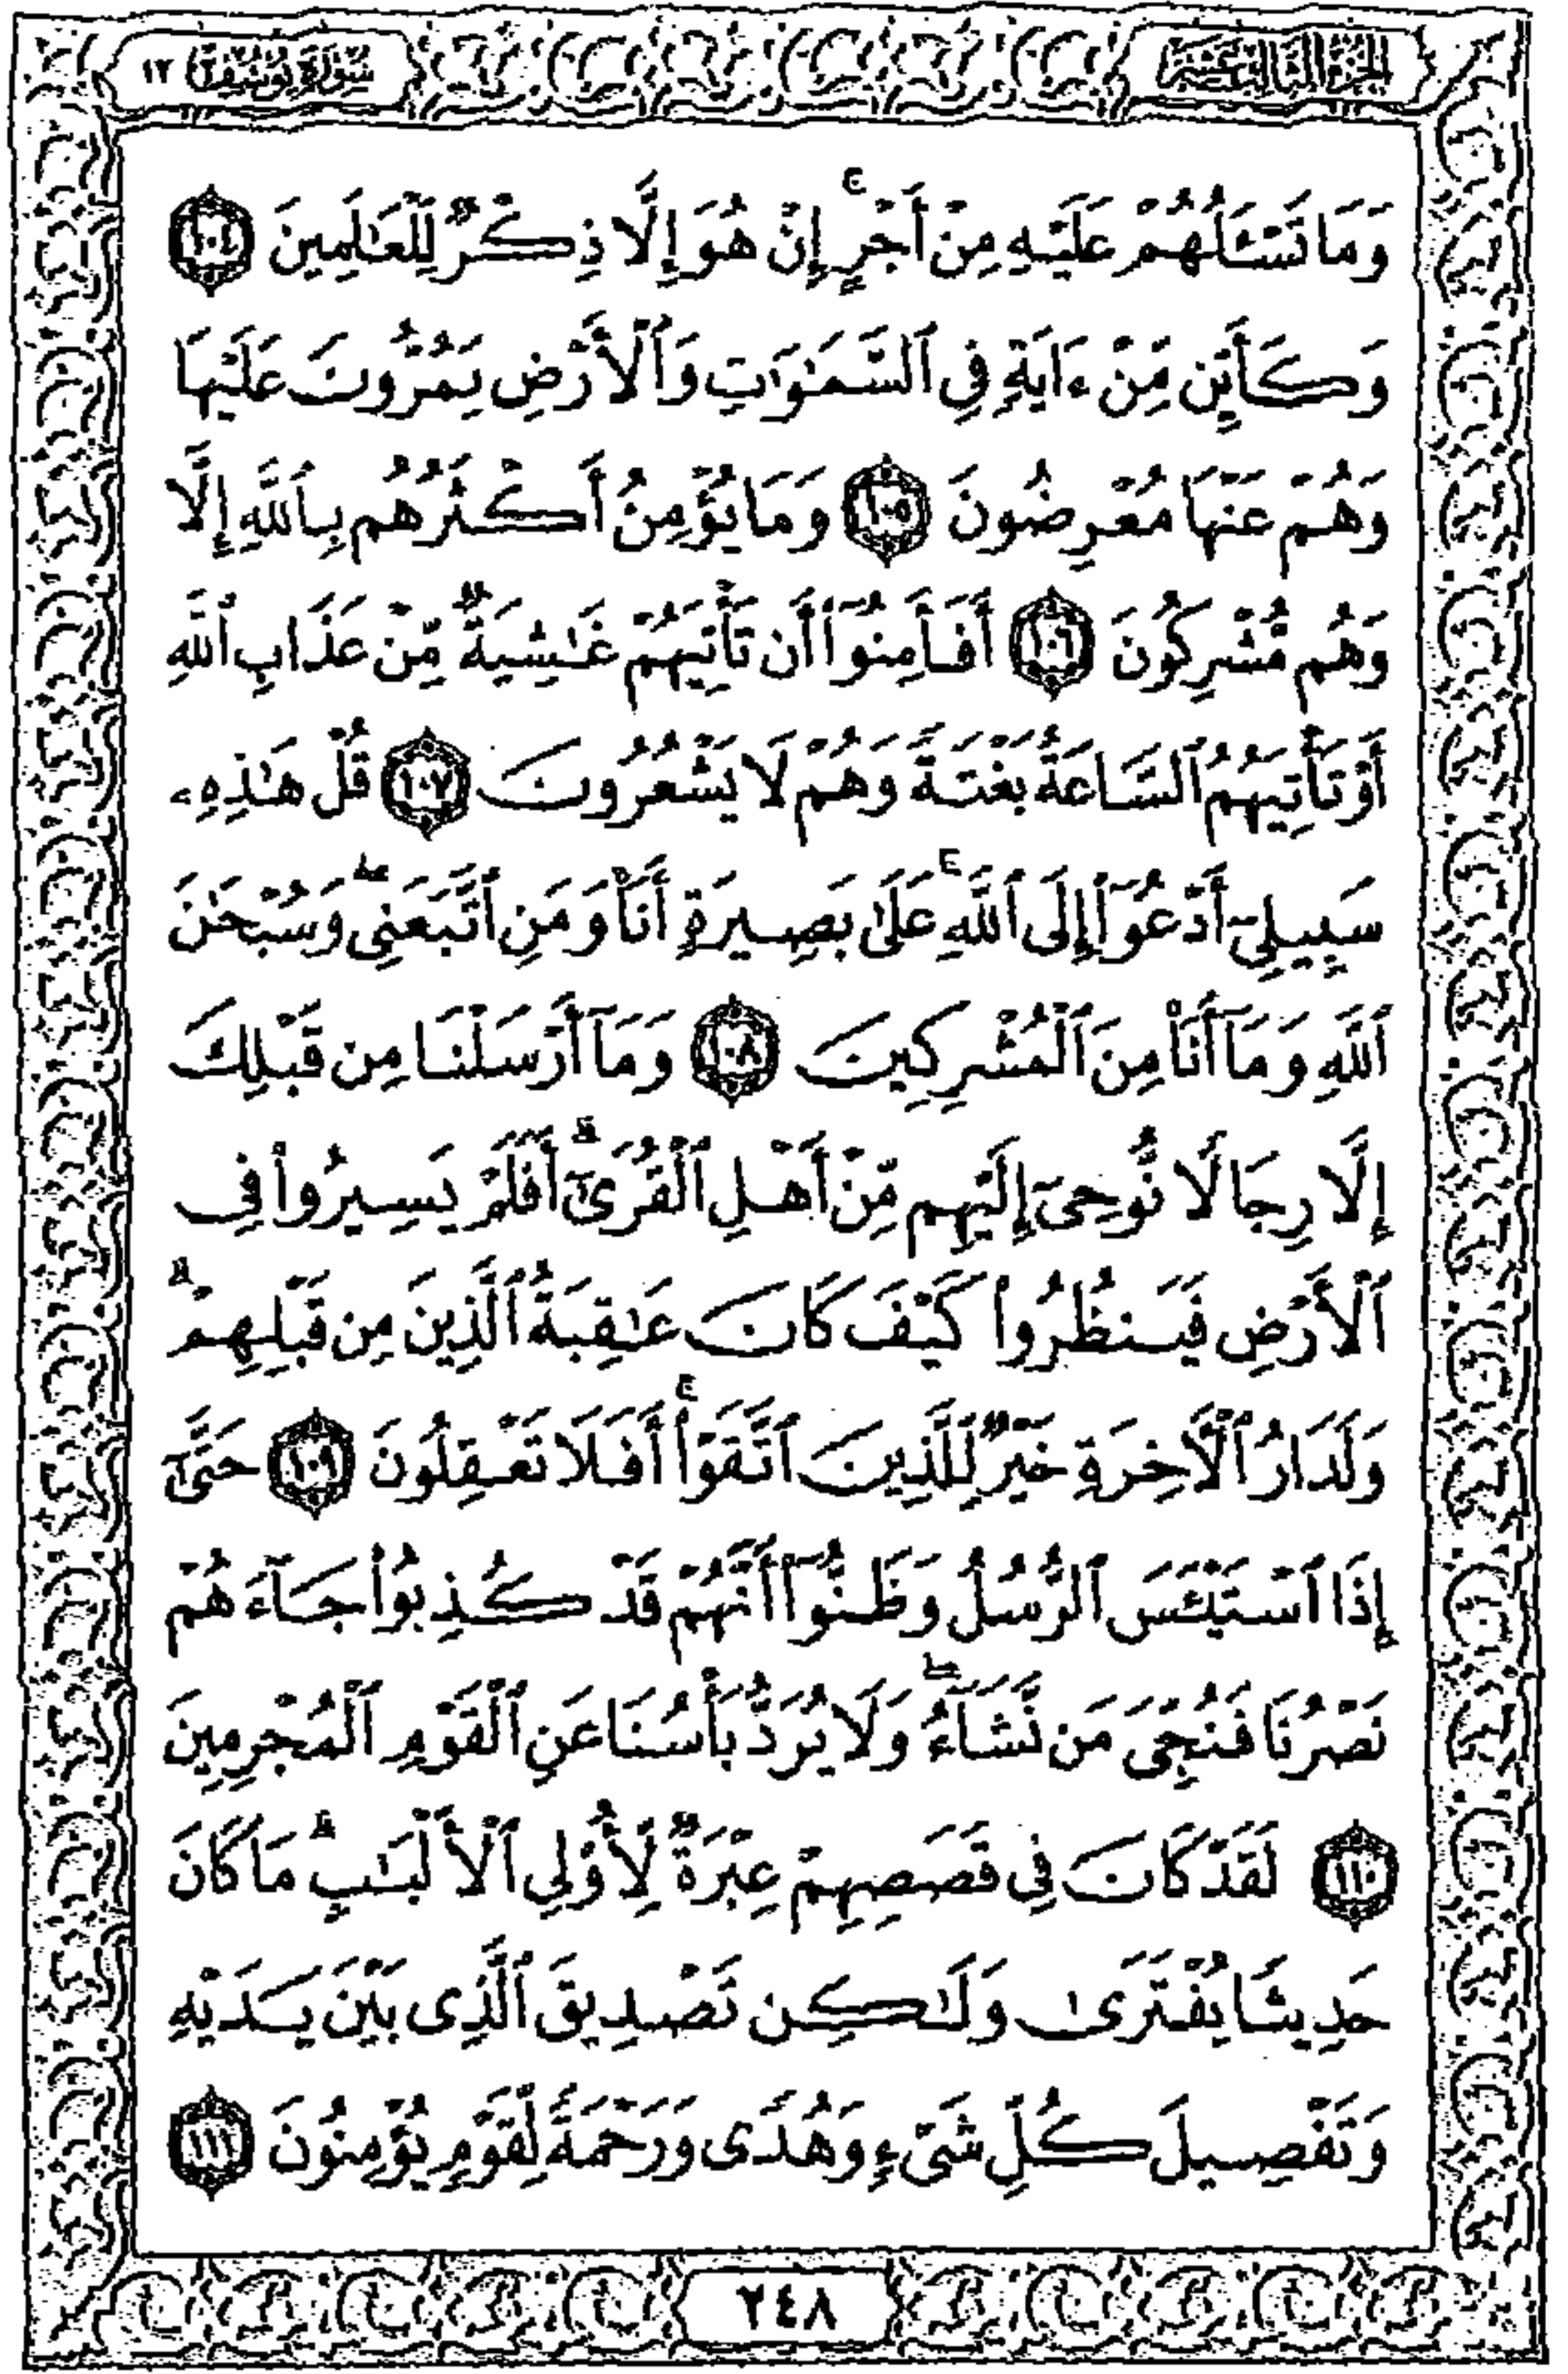 الجزء الثالث عشر
سورة يوسف ١٢
وَمَا تَسْـَٔلُهُمْ عَلَيْهِ مِنْ أَجْرٍ ۚ إِنْ هُوَ إِلَّا ذِكْرٌ لِّلْعَـٰلَمِينَ ١٠٤
وَكَأَيِّن مِّنْ ءَايَةٍ فِى ٱلسَّمَـٰوَٰتِ وَٱلْأَرْضِ يَمُرُّونَ عَلَيْهَا
وَهُمْ عَنْهَا مُعْرِضُونَ ١٠٥ وَمَا يُؤْمِنُ أَكْثَرُهُم بِٱللَّهِ إِلَّا
وَهُم مُّشْرِكُونَ ١٠٦ أَفَأَمِنُوٓا۟ أَن تَأْتِيَهُمْ غَـٰشِيَةٌ مِّنْ عَذَابِ ٱللَّهِ
أَوْ تَأْتِيَهُمُ ٱلسَّاعَةُ بَغْتَةً وَهُمْ لَا يَشْعُرُونَ ١٠٧ قُلْ هَـٰذِهِۦ
سَبِيلِىٓ أَدْعُوٓا۟ إِلَى ٱللَّهِ ۚ عَلَىٰ بَصِيرَةٍ أَنَا۠ وَمَنِ ٱتَّبَعَنِى ۖ وَسُبْحَـٰنَ
ٱللَّهِ وَمَآ أَنَا۠ مِنَ ٱلْمُشْرِكِينَ ١٠٨ وَمَآ أَرْسَلْنَا مِن قَبْلِكَ
إِلَّا رِجَالًا نُّوحِىٓ إِلَيْهِم مِّنْ أَهْلِ ٱلْقُرَىٰٓ ۗ أَفَلَمْ يَسِيرُوا۟ فِى
ٱلْأَرْضِ فَيَنظُرُوا۟ كَيْفَ كَانَ عَـٰقِبَةُ ٱلَّذِينَ مِن قَبْلِهِمْ ۗ
وَلَدَارُ ٱلْـَٔاخِرَةِ خَيْرٌ لِّلَّذِينَ ٱتَّقَوْا۟ ۚ أَفَلَا تَعْقِلُونَ ١٠٩ حَتَّىٰٓ
إِذَا ٱسْتَيْـَٔسَ ٱلرُّسُلُ وَظَنُّوٓا۟ أَنَّهُمْ قَدْ كُذِبُوا۟ جَآءَهُمْ
نَصْرُنَا فَنُجِّىَ مَن نَّشَآءُ ۖ وَلَا يُرَدُّ بَأْسُنَا عَنِ ٱلْقَوْمِ ٱلْمُجْرِمِينَ
١١٠ لَقَدْ كَانَ فِى قَصَصِهِمْ عِبْرَةٌ لِّأُو۟لِى ٱلْأَلْبَـٰبِ ۗ مَا كَانَ
حَدِيثًا يُفْتَرَىٰ وَلَـٰكِن تَصْدِيقَ ٱلَّذِى بَيْنَ يَدَيْهِ
وَتَفْصِيلَ كُلِّ شَىْءٍ وَهُدًى وَرَحْمَةً لِّقَوْمٍ يُؤْمِنُونَ ١١١
٢٤٨